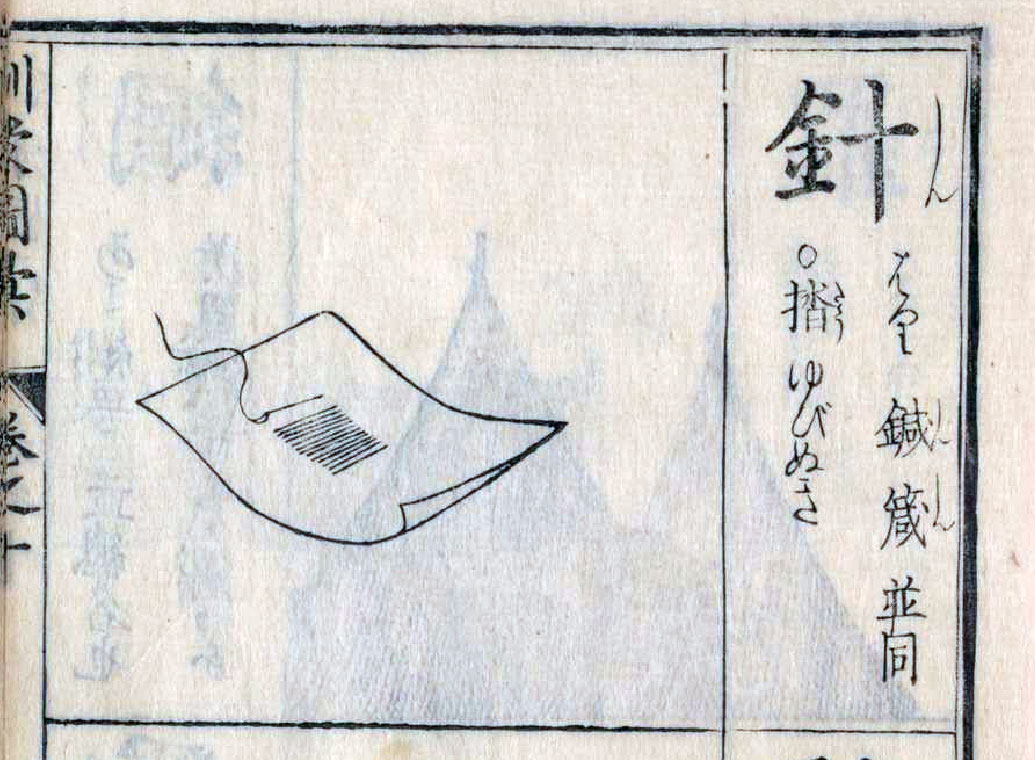 針 しん
はり 鍼 しん 箴 しん 並同
○揝 ゆびぬき
訓蒙圖彙 卷之十